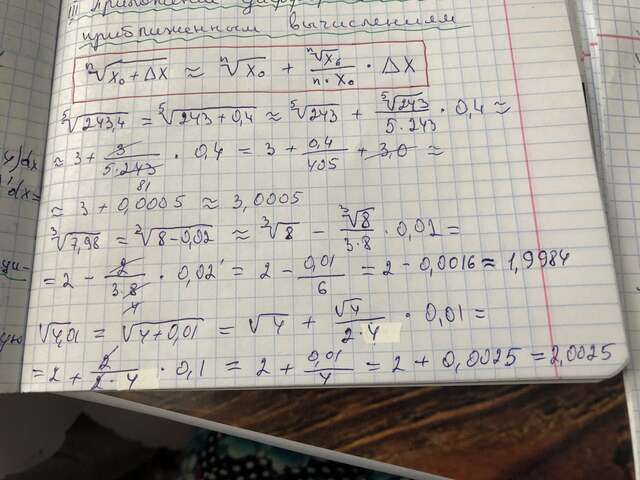 Применение
приближенным вычислениям
ⁿ√(x₀+Δx) ≈ ⁿ√x₀ + ⁿ√x₀/(n·x₀) · Δx
⁵√243,4 = ⁵√(243+0,4) ≈ ⁵√243 + ⁵√243/(5·243) · 0,4 ≈
≈ 3 + 3/(5·243) · 0,4 = 3 + 0,4/405 + 3,0 ≈
81
≈ 3 + 0,0005 ≈ 3,0005
³√7,98 = ³√(8-0,02) ≈ ³√8 - ³√8/(3·8) · 0,02 =
= 2 - 2/(3·8) · 0,02 = 2 - 0,01/6 = 2 - 0,0016 ≈ 1,9984
4
√4,01 = √(4+0,01) = √4 + √4/(2·4) · 0,01 =
= 2 + 2/(2·4) · 0,1 = 2 + 0,01/4 = 2 + 0,0025 = 2,0025
y)dx
dx=
ци-
ую